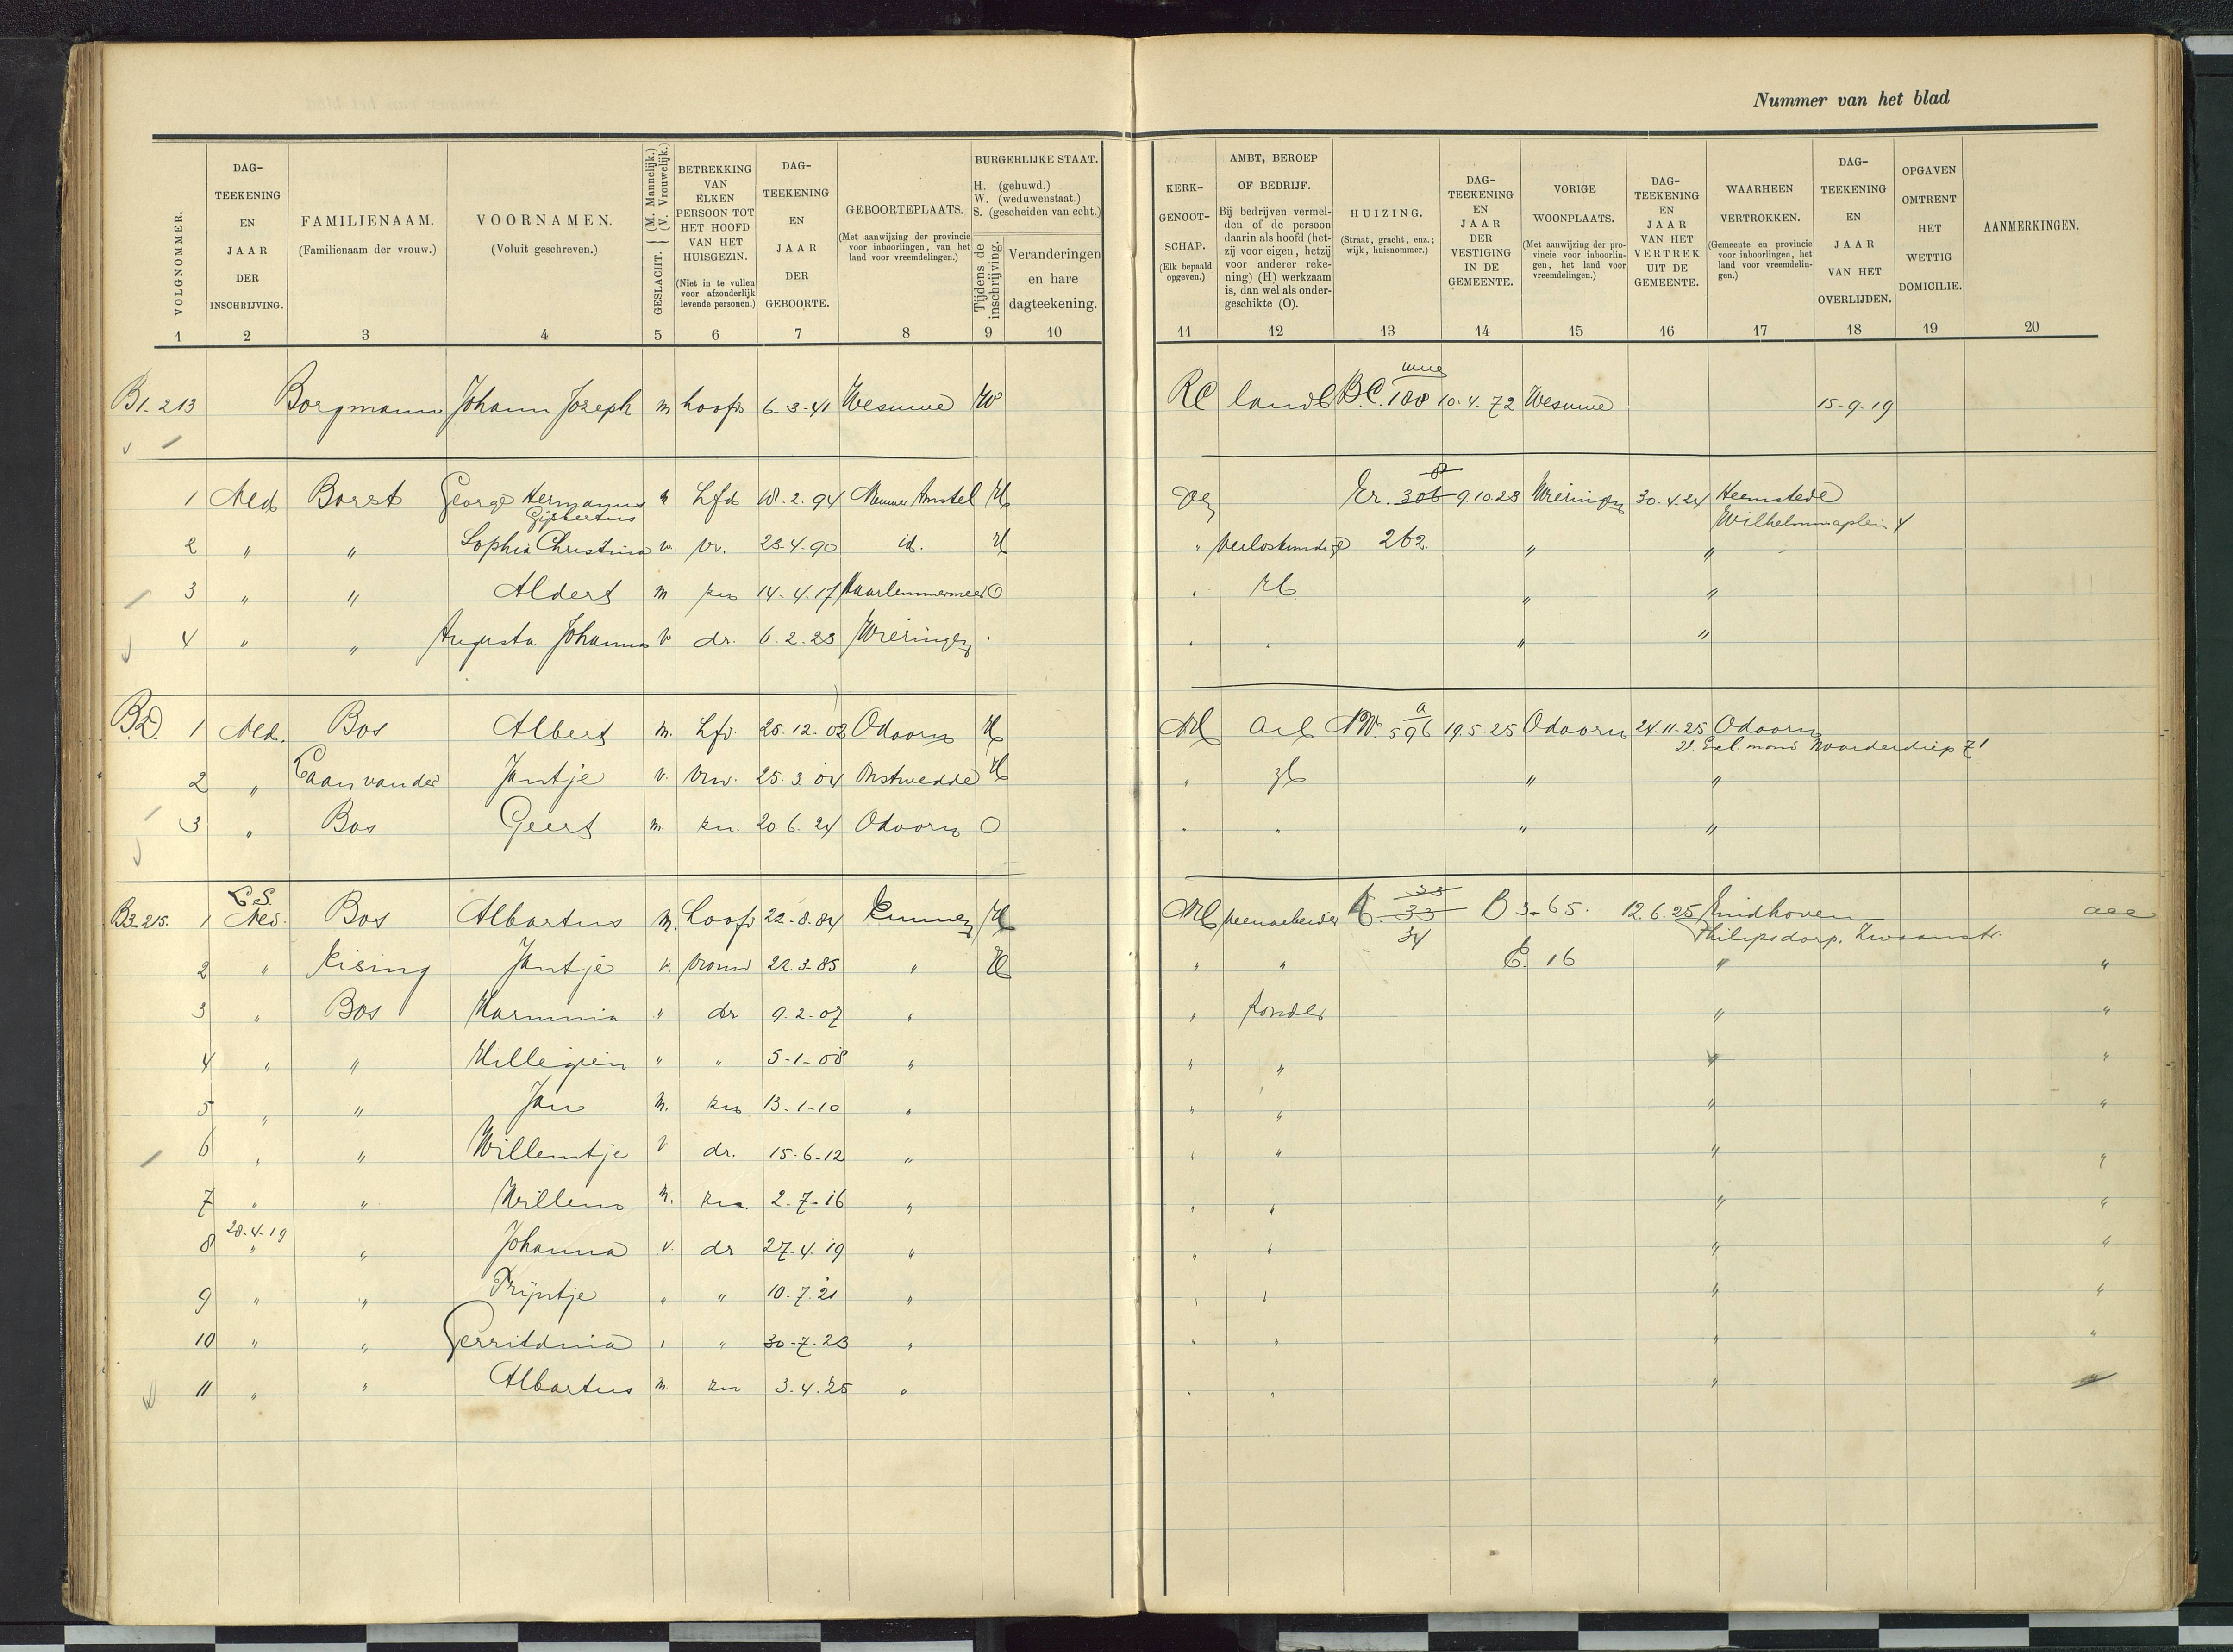 Nummer van het blad
VOLGNOMMER. 1
DAG-TEEKENING EN JAAR DER INSCHRIJVING. 2
FAMILIENAAM. (Familienaam der vrouw.) 3
VOORNAMEN. (Voluit geschreven.) 4
GESLACHT. (M. Mannelijk.) (V. Vrouwelijk.) 5
BETREKKING VAN ELKEN PERSOON TOT HET HOOFD VAN HET HUISGEZIN. (Niet in te vullen voor afzonderlijk levende personen.) 6
DAG-TEEKENING EN JAAR DER GEBOORTE. 7
GEBOORTEPLAATS. (Met aanwijzing der provincie voor inboorlingen, van het land voor vreemdelingen.) 8
BURGERLIJKE STAAT. H. (gehuwd.) W. (weduwenstaat.) S. (gescheiden van echt.)
Tijdens de inschrijving. 9
Veranderingen en hare dagteekening. 10
KERK-GENOOT-SCHAP. (Elk bepaald opgeven.) 11
AMBT, BEROEP OF BEDRIJF. Bij bedrijven vermelden of de persoon daarin als hoofd (hetzij voor eigen, hetzij voor anderer rekening) (H) werkzaam is, dan wel als ondergeschikte (O). 12
HUIZING. (Straat, gracht, enz.; wijk, huisnommer.) 13
DAG-TEEKENING EN JAAR DER VESTIGING IN DE GEMEENTE. 14
VORIGE WOONPLAATS. (Met aanwijzing der provincie voor inboorlingen, het land voor vreemdelingen.) 15
DAG-TEEKENING EN JAAR VAN HET VERTREK UIT DE GEMEENTE. 16
WAARHEEN VERTROKKEN. (Gemeente en provincie voor inboorlingen, het land voor vreemdelingen.) 17
DAG-TEEKENING EN JAAR VAN HET OVERLIJDEN. 18
OPGAVEN OMTRENT HET WETTIG DOMICILIE. 19
AANMERKINGEN. 20
B1-213 Borgmann Johann Joseph m hoofd 6-3-41 Wesuwe W RC landb BC. 100 10-4-72 Wesuwe 15-9-19
1 Ned Borst George Hermanus Gijsbertus m hfd 18.2.94 Nieuwer Amstel H Er. 306 9.10.23 Wieringen 30.4.24 Heemstede
Wilhelminaplein 4
2 " " Sophia Christina v vr. 23-4-90 id. H " Verloskundige 262. " "
3 " " Aldert m zn 14-4.17 Haarlemmermeer O " " "
4 " " Augusta Johanna v dr. 6.2.23 Wieringen " " " " "
1 Ned. Bos Albert m. hfd. 25.12-02 Odoorn H NH arb NW. 596 a 19.5.25 Odoorn 24-11-25 Odoorn
2e Exl. mond Noorderdiep 71
2 " Laan van der Jantje v. vrw. 25.3.04 Onstwedde H " zb " "
3 " Bos Geert m. zn. 20.6.24 Odoorn O " " " "
B2-215. 1 Ned. Bos Albartus m. hoofd 22-8.84 Emmen H NH veenarbeider 33 33 34 B 3-65. 12.6.25 Eindhoven
Philipsdorp. Zwaanstr.
2 " Eising Jantje v. vrouw 22.3-85 " H " " E. 16 " "
3 " Bos Harmina " dr 9.2-07 " " zonder " "
4 " " Hillegien " " 5-1-08 " " " " "
5 " " Jan m. zn 13-1-10 " " " " "
6 " " Willemtje v dr. 15-6-12 " " " " "
7 " " Willem m. zn 2-7-16 " " " " "
8 28-4-19 " " Johanna v. dr 27-4.19 " " " " "
9 " " Trijntje " " 10.7.21 " " " " "
10 " " Gerritdina " " 30-7.23 " " " " "
11 " " Albartus m. zn 3.4.25 " " " "